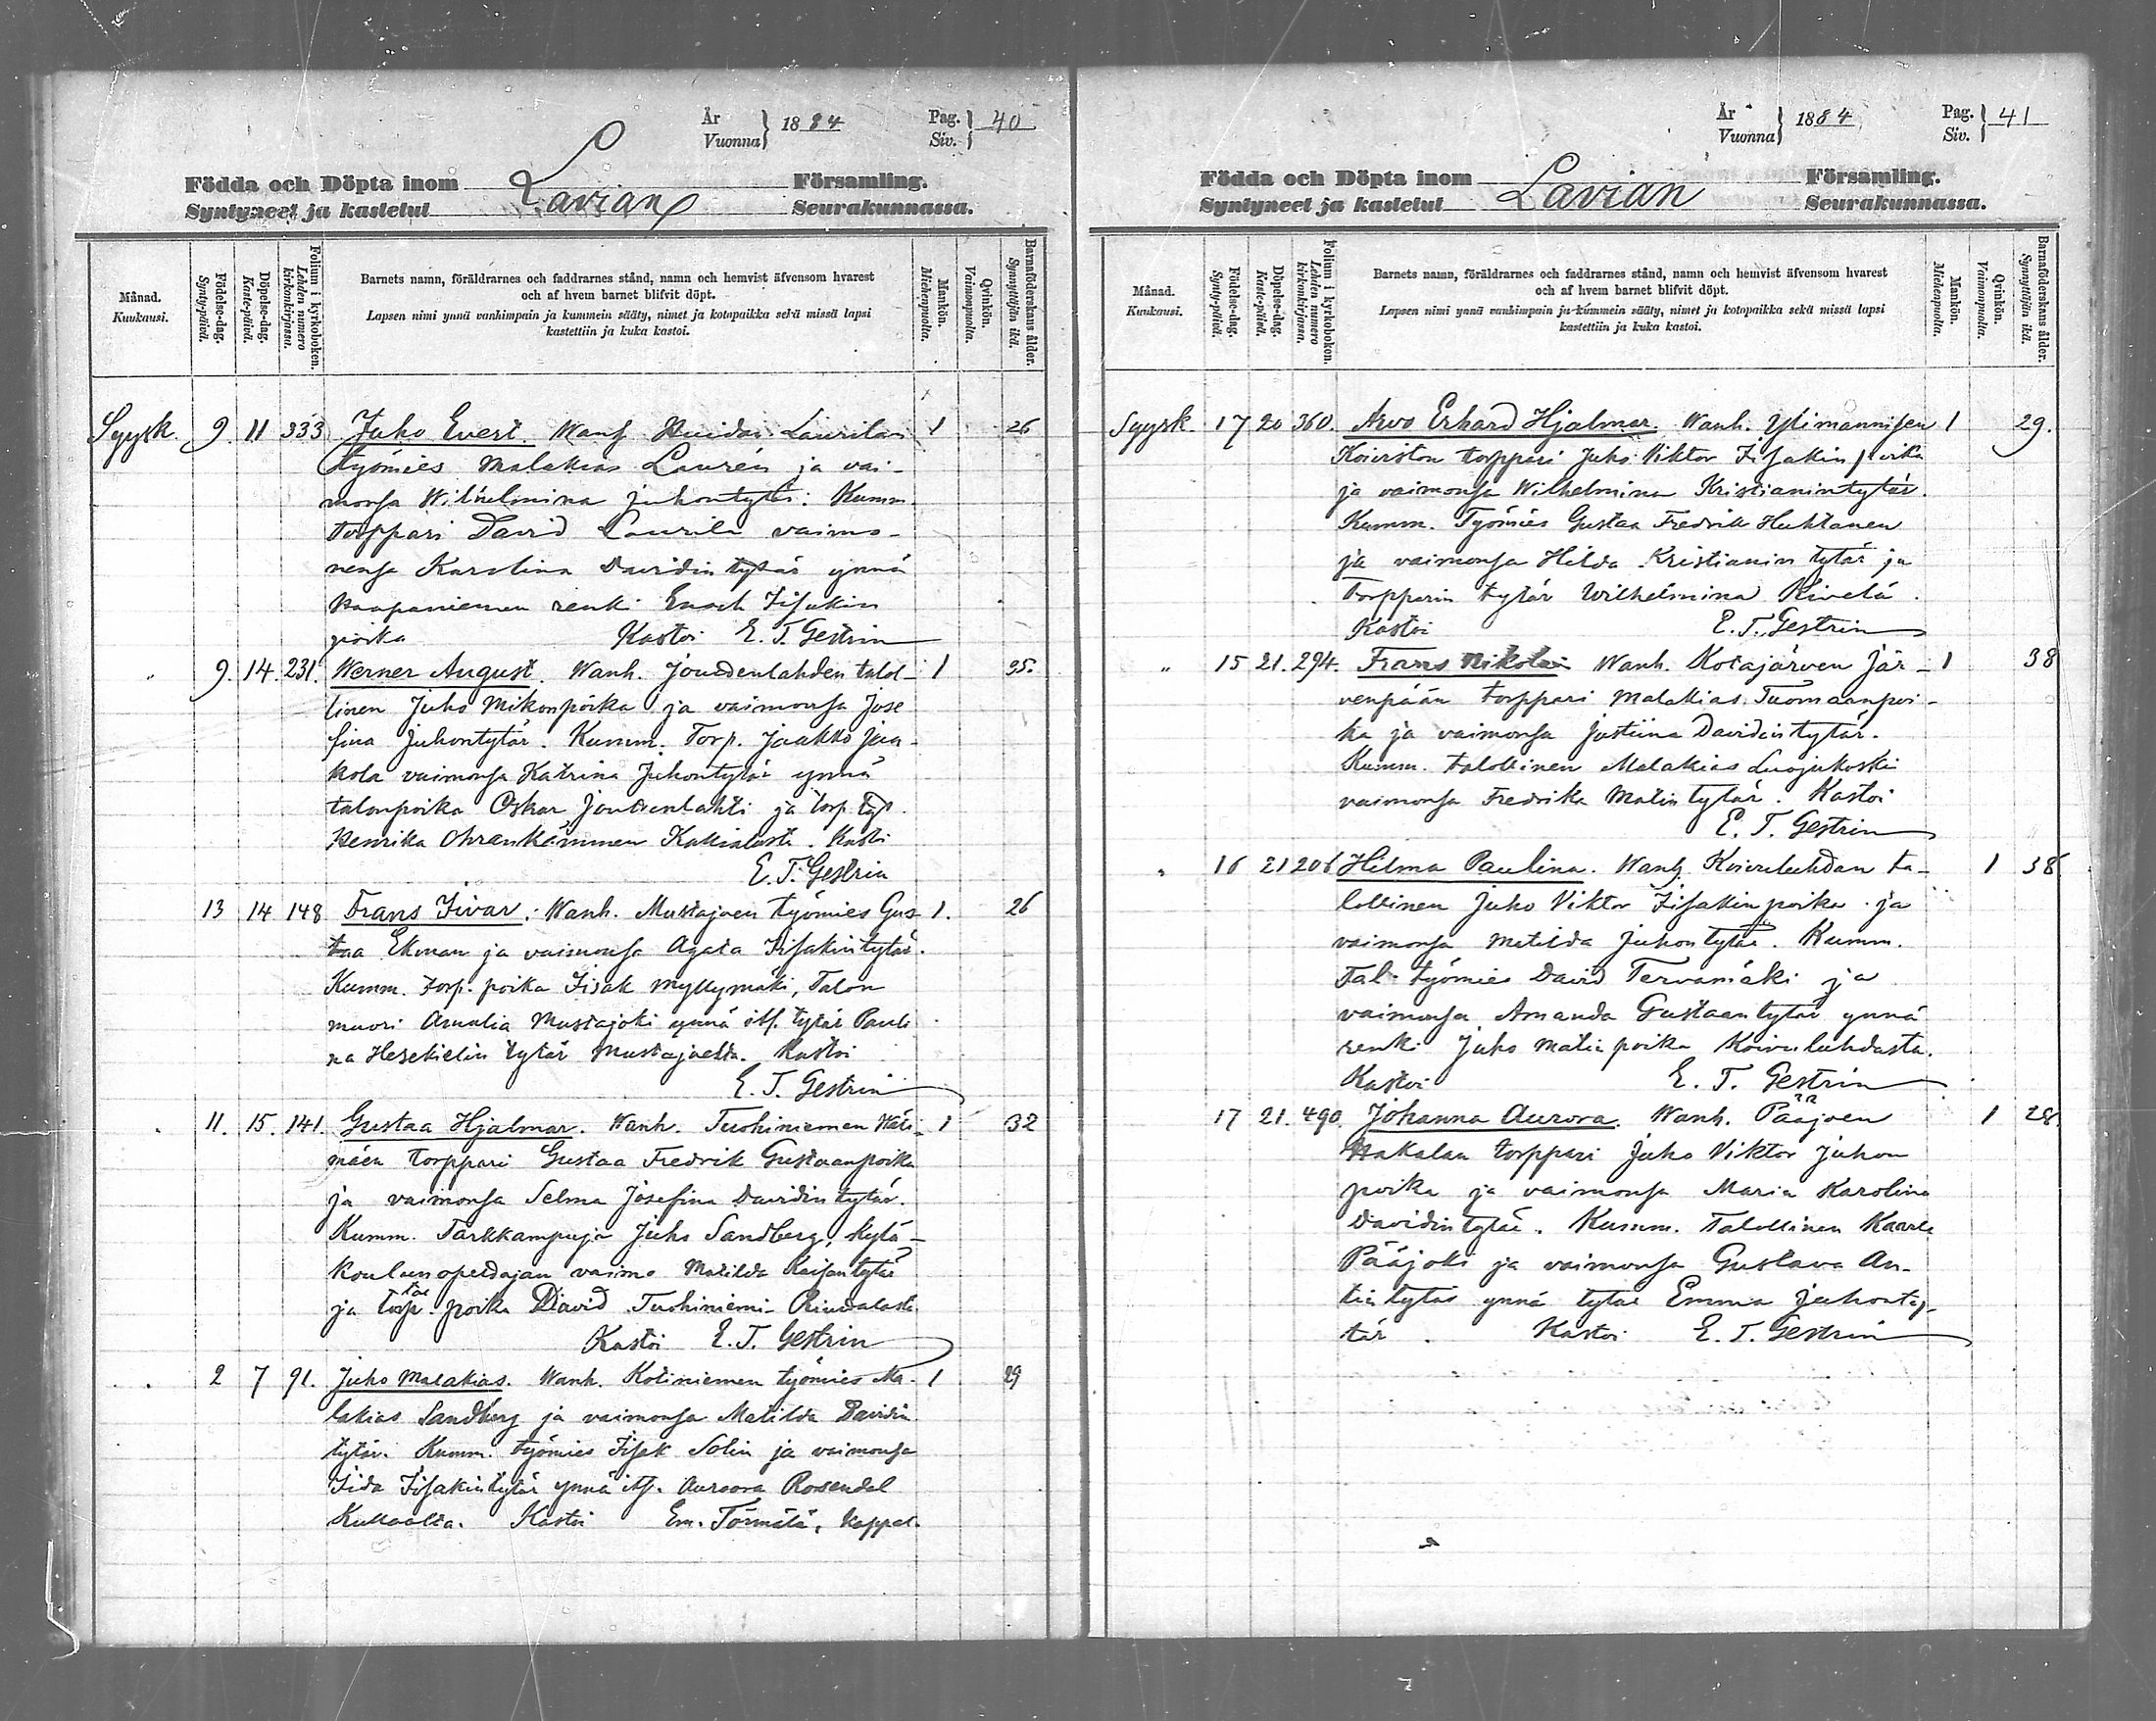 År
Vuonna } 1884
Pag.
Siv. } 40
Födda och Döpta inom Lavian Församling.
Syntyneet ja kastetut Seurakunnassa.
Månad.
Kuukausi.
Födelse-dag.
Synty-päivä.
Döpelse-dag.
Kaste-päivä.
Folium i kyrkoboken.
Lehden numero kirkonkirjassa.
Barnets namn, föräldrarnes och faddrarnes stånd, namn och hemvist äfvensom hvarest
och af hvem barnet blifvit döpt.
Lapsen nimi ynnä vanhimpain ja kummein sääty, nimet ja kotopaikka sekä missä lapsi
kastettiin ja kuka kastoi.
Mankön.
Miehenpuolta.
Qvinkön.
Vaimonpuolta.
Barnaföderskans ålder.
Synnyttäjän ikä.
Syysk. 9. 11 333 Juho Evert. Wanh. Laurilan 1 26
työmies Malakias Laurén ja vai-
monsa Wilhelmina Juhontytär. Kumm.
torppari David Laurila vaimo-
nensa Karolina Davidintytär ynnä
Haapaniemen renki Enoch Iisakin
poika Kastoi E. T. Gestrin
" 9. 14. 231. Werner August. Wanh. Joutsenlahden talol- 1 35.
linen Juho Mikonpoika ja vaimonsa Jose
fina Juhontytär. Kumm. Torp. Jaakko Jaa-
kola vaimonsa Katrina Juhontytär ynnä
talonpoika Oskar Joutsenlahti ja torp. tyt.
Henrika Ohrankämmen Kastoi
E. T. Gestrin
13 14 148 Frans Iivar. Wanh. Mustajoen työmies Gus- 1. 26
taa Ekman ja vaimonsa Agata Iisakintytär.
Kumm. torp. poika Iisak Myllymäki, Talon
muori Amalia Mustajoki ynnä its. tytär Pauli
na Hesekielin tytär Mustajoelta. Kastoi
E. T. Gestrin
" 11. 15. 141. Gustaa Hjalmar. Wanh. Tuohiniemen 1 32
mäen torppari Gustaa Fredrik Gustaanpoika
ja vaimonsa Selma Josefina Davidintytär.
Kumm. Tarkkampuja Juho Sandberg, kylä-
koulunopettajan vaimo Matilda Kaisantytär
ja poika David Tuohiniemi
Kastoi E. T. Gestrin
" 2 7 91. Juho Malakias. Wanh. Kotiniemen työmies Ma- 1 29
lakias Sandberg ja vaimonsa Matilda Davidin
tytär. Kumm. työmies Iisak Solin ja vaimonsa
Iida Iisakintytär ynnä its. Auroora Rosendal
Kullaalta. Kastoi Em. Törmälä, kappal.
År
Vuonna } 1884
Pag.
Siv. } 41
Födda och Döpta inom Lavian Församling.
Syntyneet ja kastetut Seurakunnassa.
Månad.
Kuukausi.
Födelse-dag.
Synty-päivä.
Döpelse-dag.
Kaste-päivä.
Folium i kyrkoboken.
Lehden numero kirkonkirjassa.
Barnets namn, föräldrarnes och faddrarnes stånd, namn och hemvist äfvensom hvarest
och af hvem barnet blifvit döpt.
Lapsen nimi ynnä vanhimpain ja kummein sääty, nimet ja kotopaikka sekä missä lapsi
kastettiin ja kuka kastoi.
Mankön.
Miehenpuolta.
Qvinkön.
Vaimonpuolta.
Barnaföderskans ålder.
Synnyttäjän ikä.
Syysk. 17 20 360. Arvo Erhard Hjalmar. Wanh. Ylimannisen 1 29.
Koiviston torppari Juho Viktor Iisakinpoika
ja vaimonsa Wilhelmina Kristianintytär.
Kumm. Työmies Gustaa Fredrik Huhtanen
ja vaimonsa Hilda Kristianin tytär ja
Torpparin tytär Wilhelmina Kivelä.
Kastoi E. T. Gestrin
" 15 21. 294. Frans Nikolai Wanh. Kotajärven Jär- 1 38
venpään torppari Malakias Tuomaanpoi-
ka ja vaimonsa Justiina Davidintytär.
Kumm. talollinen Malakias Luojukoski
vaimonsa Fredrika Matintytär. Kastoi
E. T. Gestrin
" 16 21 206 Hilma Paulina. Wanh. Koivuluhdan ta- 1 38
lollinen Juho Viktor Iisakinpoika ja
vaimonsa Matilda Juhontytär. Kumm.
Tal. työmies David Tervamäki ja
vaimonsa Amanda Gustaantytär ynnä
renki Juho Matinpoika Koivuluhdasta.
Kastoi E. T. Gestrin
17 21. 490. Johanna Aurora. Wanh. Pääjoen 1 28.
Hakalan torppari Juho Viktor Juhon
poika ja vaimonsa Maria Karolina
Davidintytär. Kumm. Talollinen Kaarle
Pääjoki ja vaimonsa Gustava An-
tintytär ynnä tytär Emma Juhonty-
tär. Kastoi E. T. Gestrin